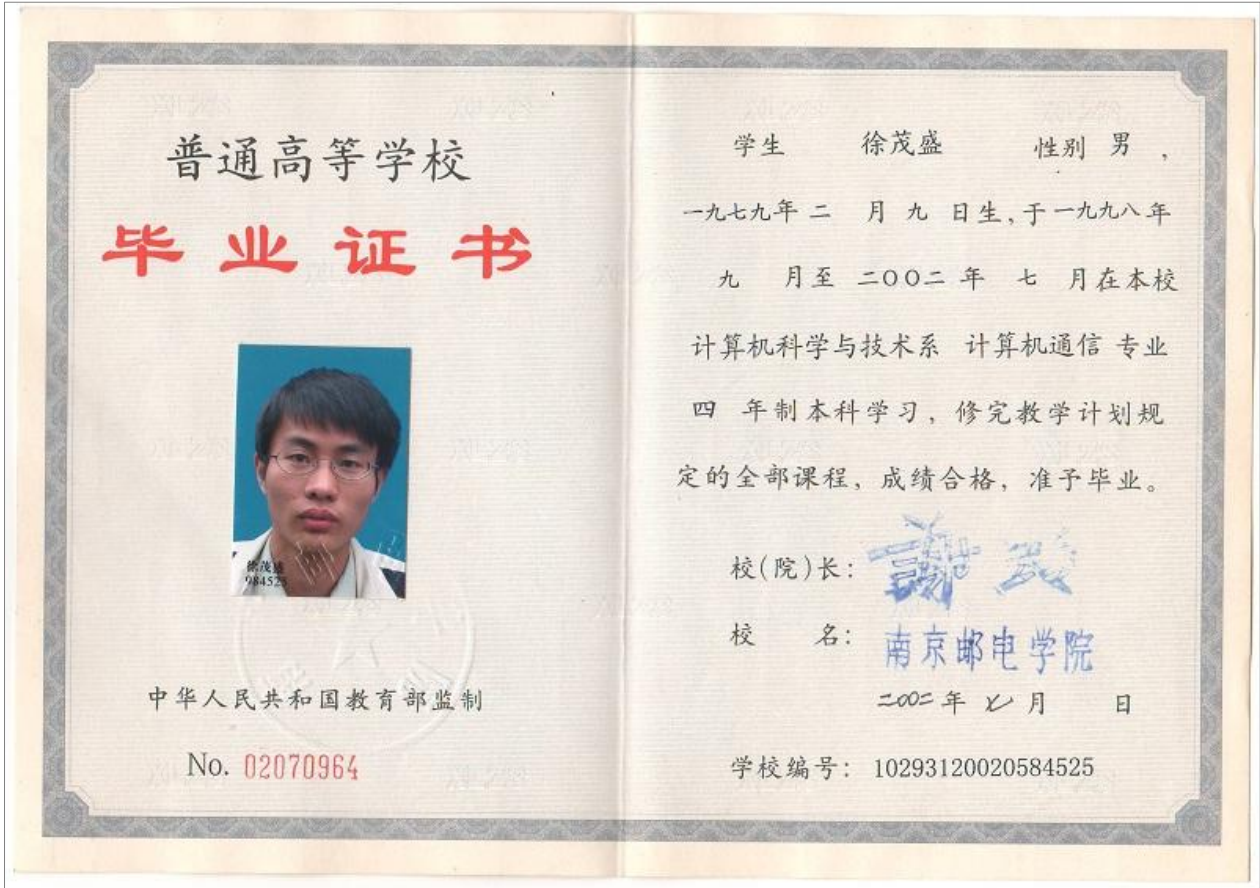 普通高等学校
毕业证书
徐茂盛
984525
中华人民共和国教育部监制
No. 02070964
学生 徐茂盛 性别 男,
一九七九年 二 月 九 日生,于一九九八年
九 月至 二〇〇二 年 七 月在本校
计算机科学与技术系 计算机通信 专业
四 年制本科学习,修完教学计划规
定的全部课程,成绩合格,准予毕业。
校(院)长:
校 名: 南京邮电学院
二〇〇二年 七 月 日
学校编号: 10293120020584525